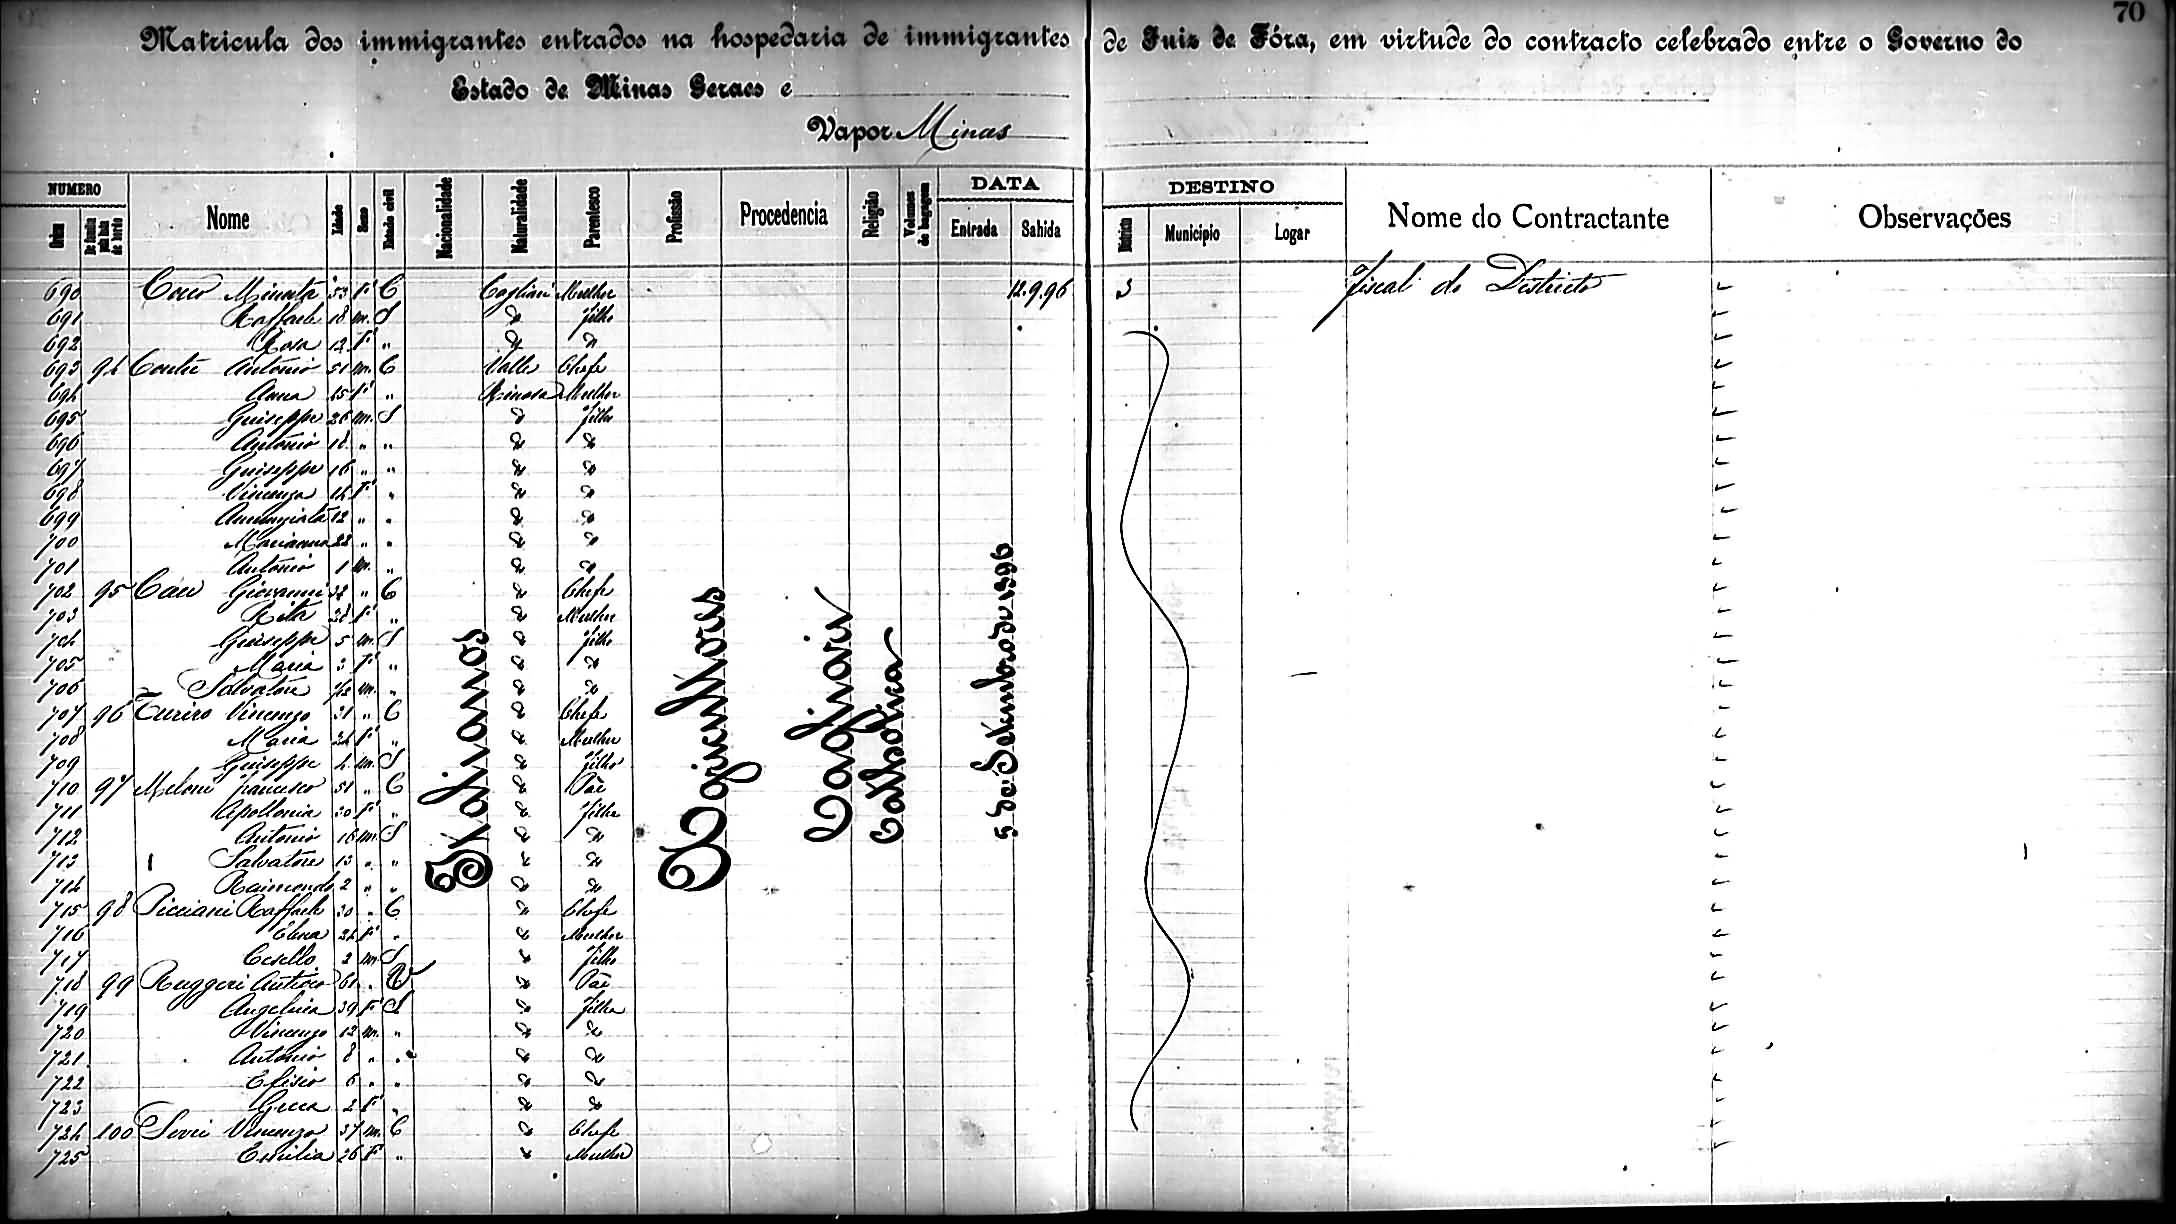 70
Matricula dos immigrantes entrados na hospedaria de immigrantes de Juiz de Fóra, em virtude do contracto celebrado entre o Governo do
Estado de Minas Geraes e
Vapor Minas
NUMERO DATA DESTINO
Ordem Nome Idade Sexo Estado civil Nacionalidade Naturalidade Parentesco Profissão Procedencia Religião Volumes de bagagem Entrada Sahida Districto Municipio Logar Nome do Contractante Observações
690 Minuta 53 F C Cagliari Mulher 12.9.96 3 Fiscal do Districto
691 Raffaele 18 m. S " Filho
692 Rosa 12 F " " "
693 94 Antonio 51 m. C Valle Chefe
694 Anna 45 F " Mulher
695 Guiseppe 26 m. S " Filho
696 Antonio 18 " " " "
697 Guiseppe 16 " " " "
698 Vincenza 14 F " " "
699 Annunziata 12 " " " "
700 Marianna 22 " " " "
701 Antonio 1 m. " " "
702 95 Giovanni 32 " C " Chefe
703 Rita 28 F " " Mulher
704 Guiseppe 5 m. S " Filho
705 Maria 3 F " " "
706 Salvatore m. " " "
707 96 Vincenzo 31 " C " Chefe
708 Maria 24 F " " Mulher
709 Guiseppe 4 m. S " Filho
710 97 Meloni Francesco 51 " C " Pae
711 Apollonia 30 F " " Filha
712 Antonio 16 m. S " "
713 Salvatore 13 " " " "
714 Raimondo 2 " " " "
715 98 Picciani Raffaele 30 " C " Chefe
716 Elena 24 F " " Mulher
717 2 m S " Filho
718 99 Ruggeri Antioco 61 " V " Pae
719 Angelica 39 F S " Filha
720 Vincenzo 12 m. " " "
721 Antonio 8 " " " "
722 Efisio 6 " " " "
723 Greca 2 F " " "
724 100 Vincenzo 37 m. C " Chefe
725 Emilia 26 F " " Mulher
Italianos
Agricultores
Cagliari
Catholica
5 de Setembro de 1896